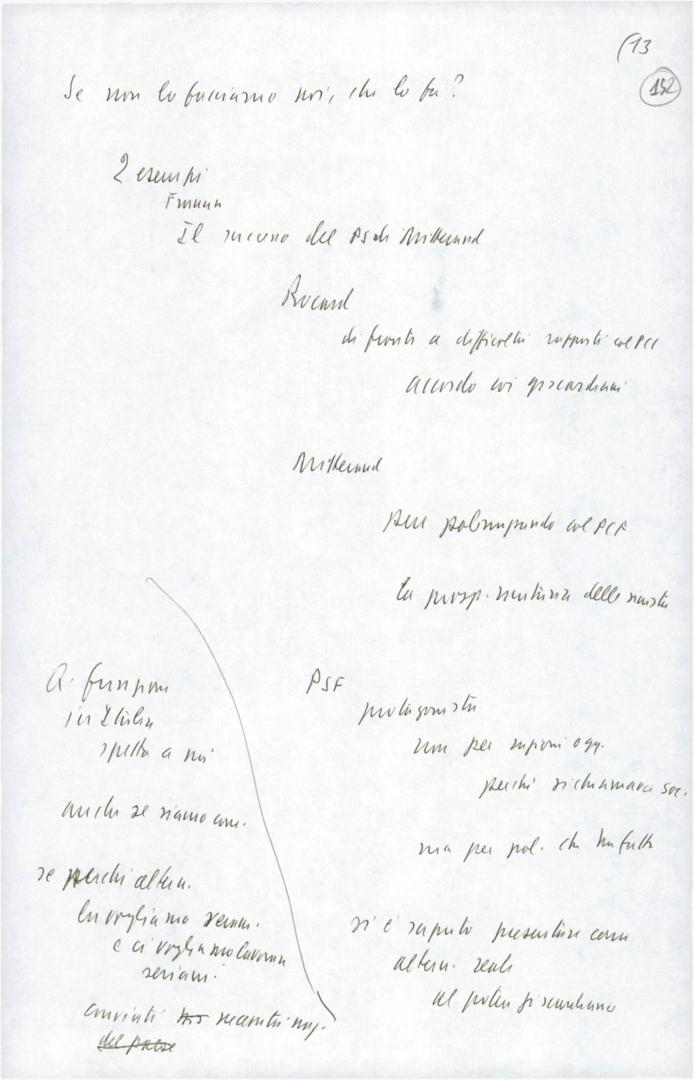 (13
182
Se non lo facciamo noi, chi lo fa?
2 esempi
Il successo del PS di Mitterand
Rocard
di fronte a difficoltà rapporti col PCF
accordo coi giscardiani
Mitterand
pur polemizzando col PCF
la prosp. unitaria della sinistra
PSF
protagonista
non per ragioni ogg.
perché si chiamava soc.
ma per pol. che ha fatto
si è saputo presentare come
altern. reale
al potere giscardiano
Q. funzione
in Italia
spetta a noi
anche se siamo com.
se perché altern.
la vogliamo veram.
e ci vogliamo lavorare
seriam.
convinti necessità
del paese